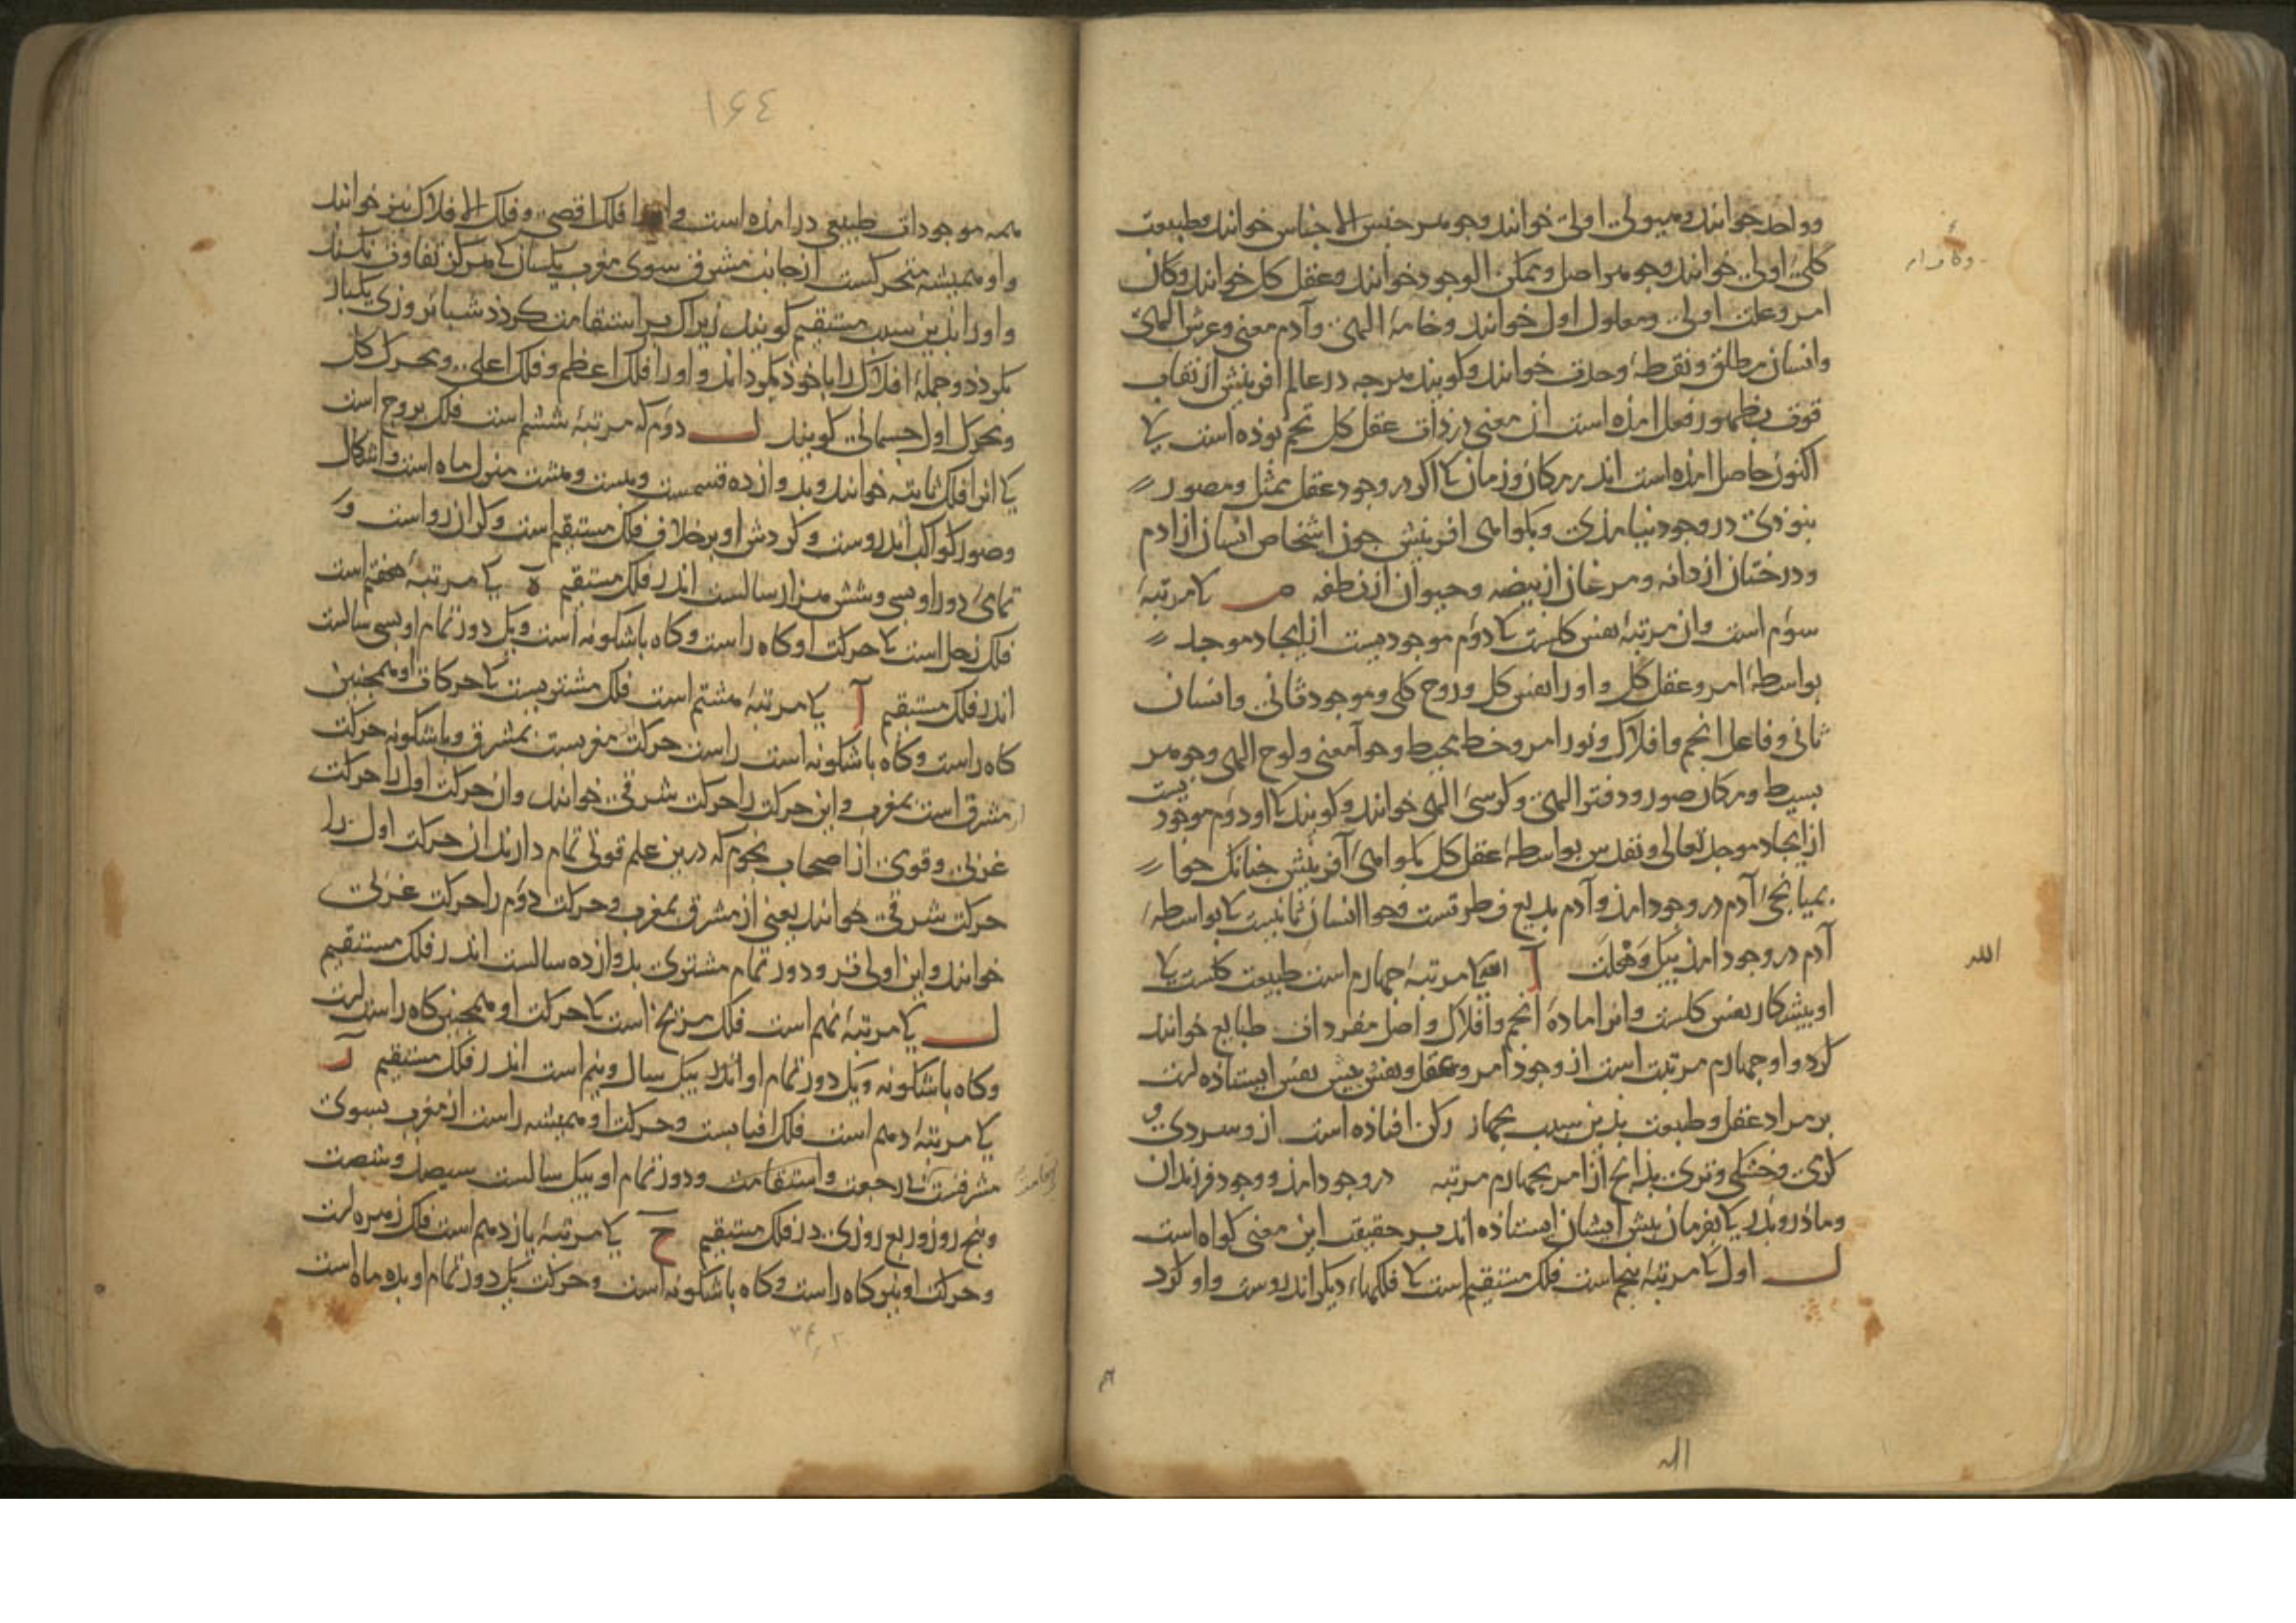 وواحد خوانند وهیولی اولی خوانند وجوهر جنس الاجناس خوانند وطبیعت
کلی اولی خوانند وجوهر اصل وممکن الوجود خوانند وعقل کل خوانند وکان
امر وعلت اولی ومعلول اول خوانند وخامهٔ الهی وآدم معنی وعرش الهی
وانسان مطلق ونقطهٔ وحدت خوانند وکویند هرجه در عالم افرینش از نقاب
قوت بظهور فعل امذه است ان معنی در ذات عقل کل تخم بوذه است کی
اکنون حاصل امذه است اندر مکان وزمان کا اکر در وجود عقل ممثل ومصور
نبوذی در وجود نیامذی وبکواهی افرینش جون اشخاص انسان از ادم
ودرختان از دانه ومرغان از بیضه وحیوان از نطفه ص کا مرتبهٔ
سوم است وان مرتبهٔ نفس کلست کا دوم موجودیست از ایجاد موجد
بواسطهٔ امر وعقل کل واورا نفس کل وروح کلی وموجود ثانی وانسان
ثانی وفاعل انجم وافلاک ونور امر وخط محیط وحوآ معنی ولوح الهی وجوهر
بسیط ومکان صور ودفتر الهی وکرسی الهی خوانند وکویند کا او دوم موجود
یست
از ایجاد موجد تعالی وتقدس بواسطهٔ عقل کل بکواهی آفرینش جنانک حوا
بمیانجی آدم در وجود امذ وآدم بدیع فطرتست وحوا انسان ثانیست کا بواسطهٔ
آدم در وجود امذ بیک وهلت آ کا مرتبهٔ جهارم است طبیعت کلست کا
او بیشکار نفس کلست وانرا مادهٔ انجم وافلاک واصل مفردات طبایع خوانند
کرد واو جهارم مرتبت است از وجود امر وعقل ونفس بیش نفس ایستاذه است
بر مراد عقل وطبیعت بذین سبب بجهار رکن افتاذه است از وسردی و
کرمی وخشکی وتری بذانج از امر بجهارم مرتبه در وجود امذ ووجود فرزندان
وماذر وبذر کا بفرمان بیش ایشان ایستاذه اند بر حقیقت این معنی کواه است
ب اول کا مرتبهٔ بنجم است فلک مستقیم است کا فلکهاء دیکر اندروست واو کرد
وکا مدار
الله
الله
۱۶٤
همه موجودات طبیعی در امذه است واورا فلک اقصی وفلک الافلاک نیز خوانند
واو همیشه متحرکست از جانب مشرق سوی مغرب یکسان کی هرکز تفاوت نکند
واورا بذین سبب مستقیم کویند زیراک بر استقامت کردذ شبانروزی یکبار
بکردذ وجملهٔ افلاک را با خوذ بکرداند واورا فلک اعظم وفلک اعلی ومحرک کل
ومحرک اول جسمانی کویند ب دوم که مرتبهٔ ششم است فلک بروج است
کا انرا فلک ثابته خوانند وبدوازده قسمست وبیست وهشت منزل ماه است واشکال
وصور کواکب اندروست وکردش او برخلاف فلک مستقیم است وکران رواست و
تمامی دور او بسی وشش هزار سالست اندر فلک مستقیم ه کا مرتبهٔ هفتم است
فلک زحل است کا حرکت او کاه راست وکاه باشکونه است ویک دور تمام او بسی سالست
اندر فلک مستقیم آ کا مرتبهٔ هشتم است فلک مشتریست کا حرکات او همجنین
کاه راست وکاه باشکونه است راست حرکت مغربست بمشرق وباشکونه حرکت
مشرق است بمغرب واین حرکت را حرکت شرقی خوانند وان حرکت اول را حرکت
غربی وقومی از اصحاب نجوم که درین علم قوتی تمام دارند ان حرکت اول را
حرکت شرقی خوانند یعنی از مشرق بمغرب وحرکت دوم را حرکت غربی
خوانند واین اولی تر ودور تمام مشتری بدوازده سالست اندر فلک مستقیم
ب کا مرتبهٔ نهم است فلک مریخ است کا حرکت او همجنین کاه راست است
وکاه باشکونه ویک دور تمام او اندر بیک سال ونیم است اندر فلک مستقیم
کا مرتبهٔ دهم است فلک افتابست وحرکت او همیشه راست از مغرب بسوی
مشرقست بی رجعت واستقامت ودور تمام او بیک سالست سیصد وشصت
وبنج روز وربع روزی در فلک مستقیم ح کا مرتبهٔ یازدهم است فلک زهره است
وحرکت او نیز کاه راست وکاه باشکونه است وحرکت یک دور تمام او بده ماه است